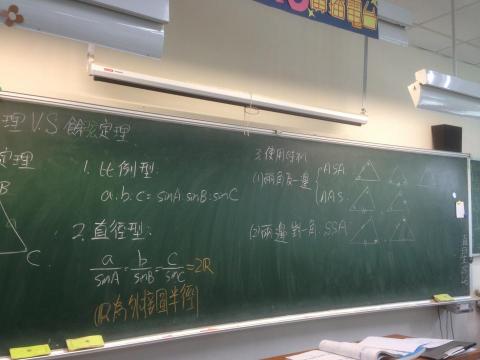 傳播電台
理 V.S 餘弦定理
定理
B
C
1. 比例型:
a:b:c=sinA:sinB:sinC
2. 直徑型:
a/sinA=b/sinB=c/sinC=2R
(R為外接圓半徑)
3. 使用時機
(1) 兩角及一邊 { ASA
AAS
(2) 兩邊對一角 SSA